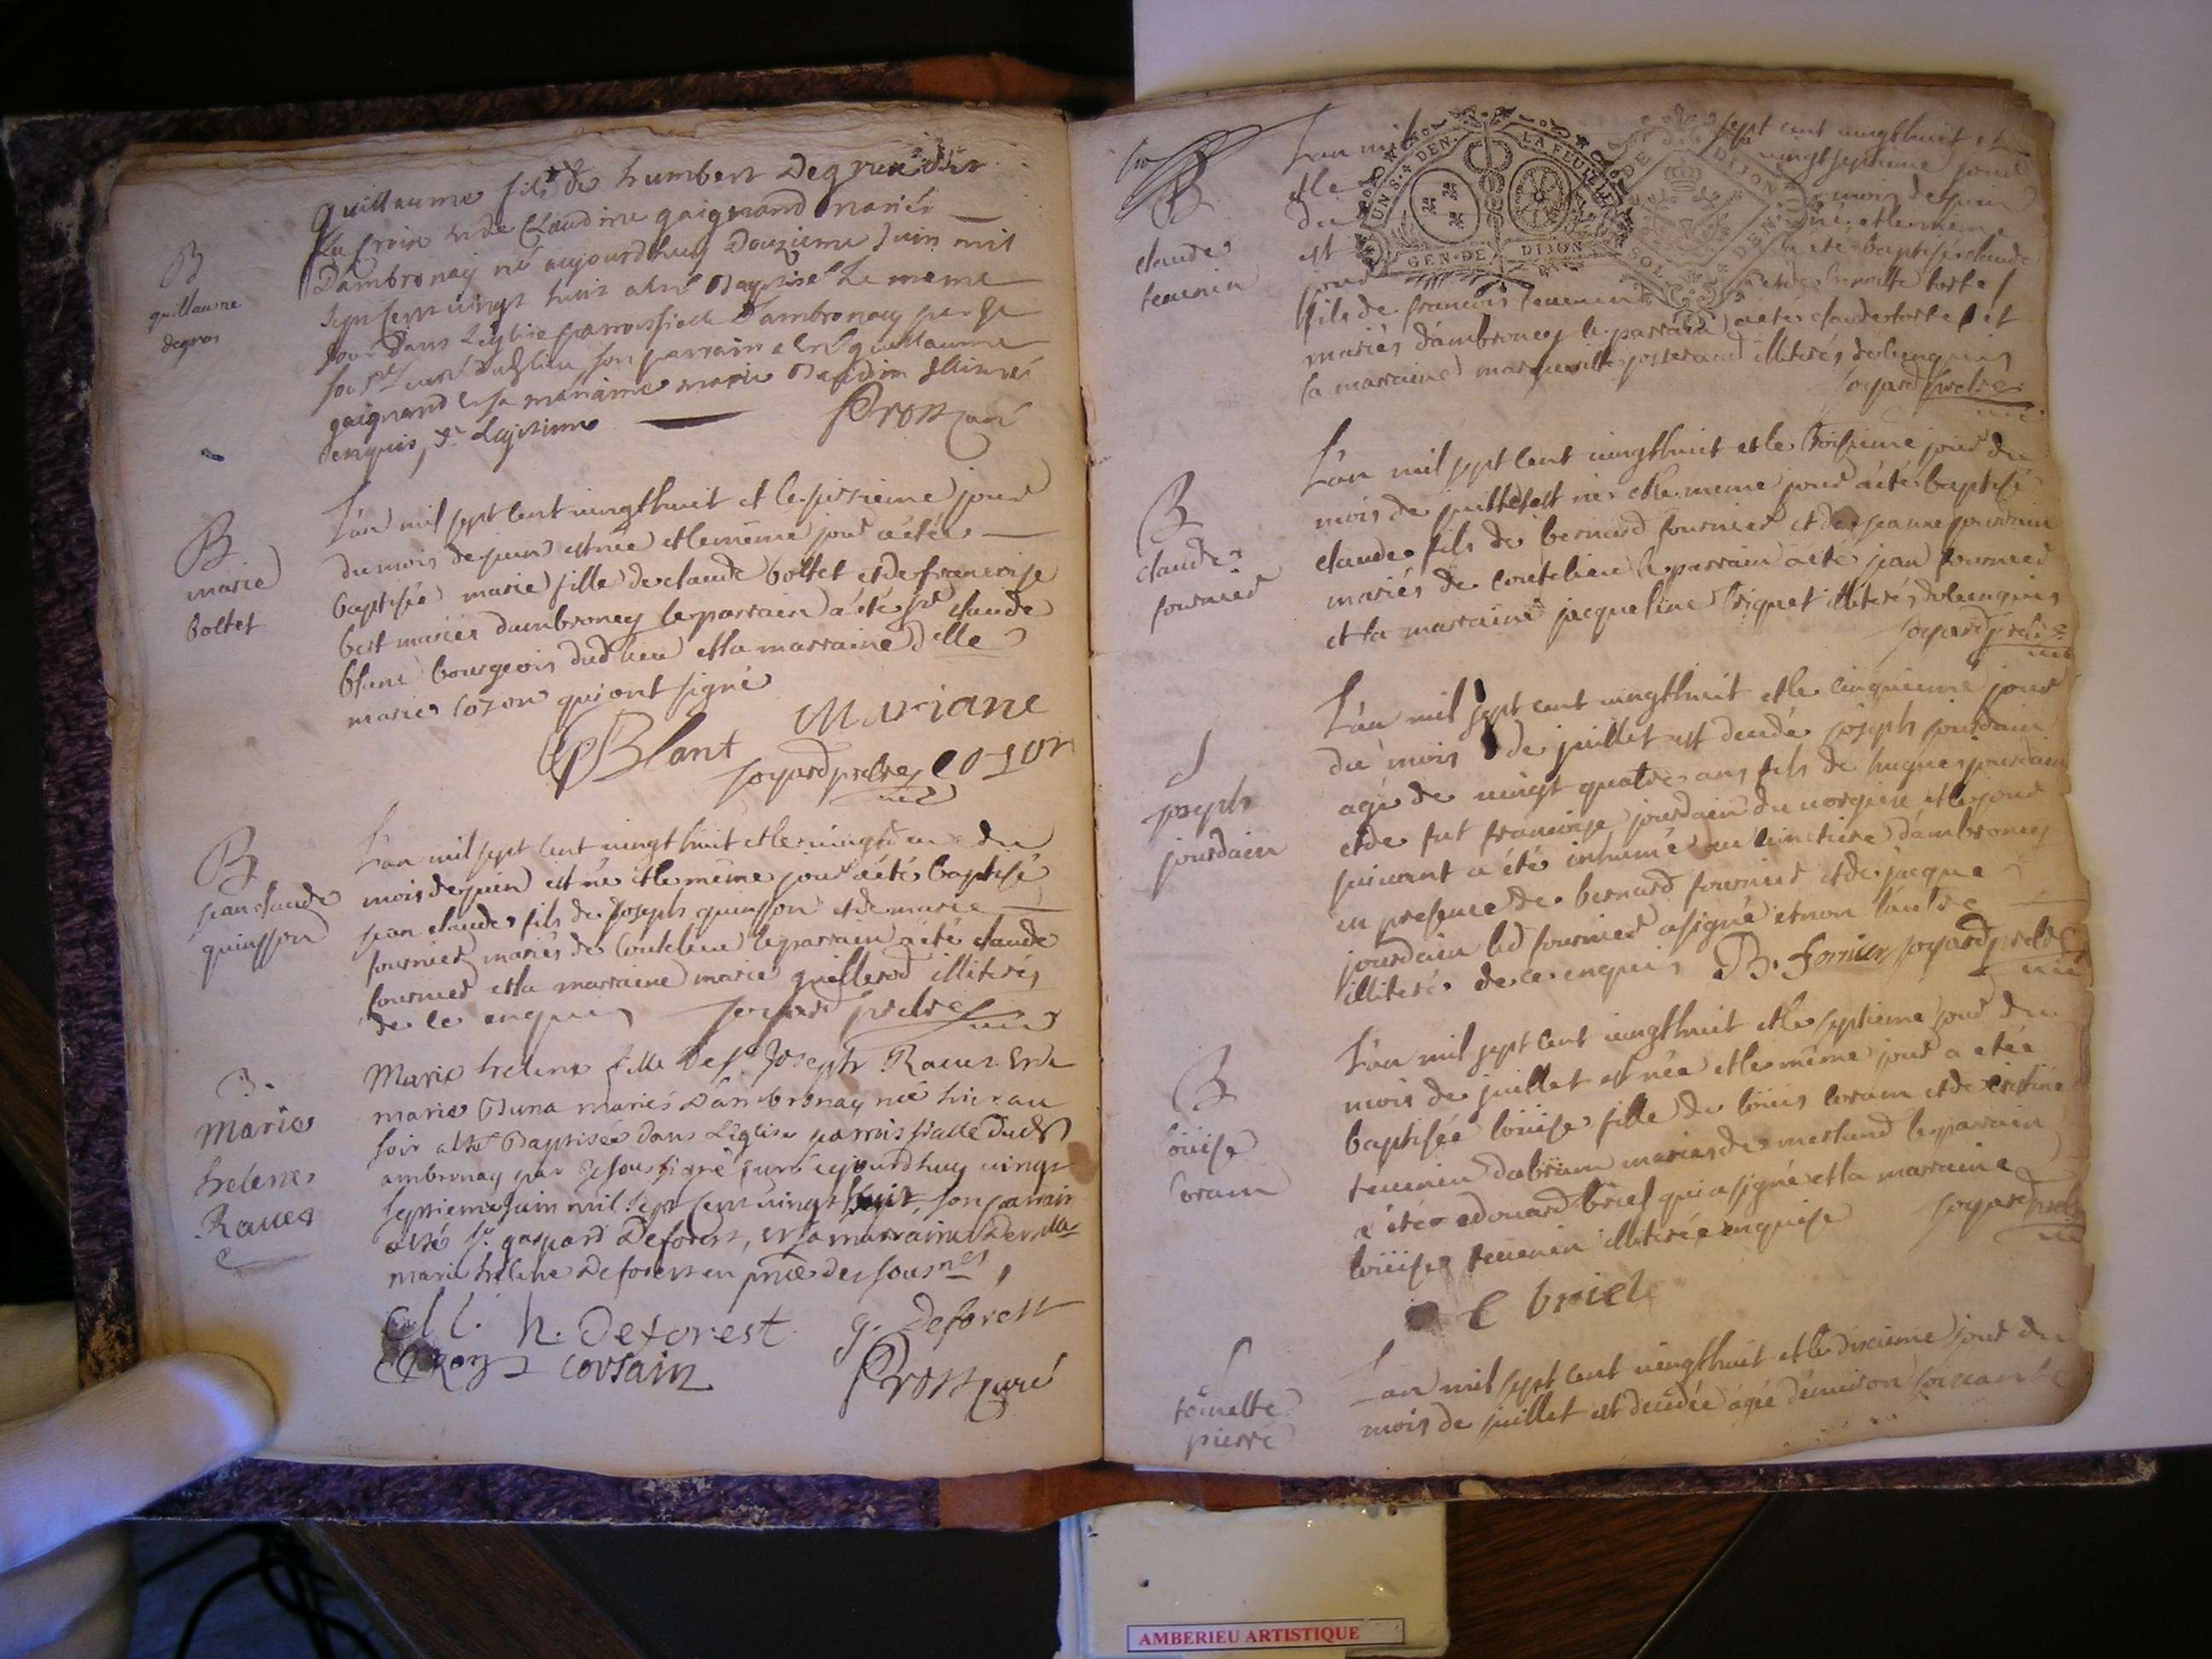 B
guillaume
degros
guillaume fils de humbert Degros dit
La Croix et de Claudine gaignand mariés
D'ambronay né aujourd'huy Douzieme Juin mil
Sept Cent vingt huit a été Baptisé Le meme
Jour Dans L'eglise parroissialle D'ambronay par Je
sous.né curé dud lieu, son parrain a été guillaume
gaignand et sa marraine marie illitérés
enquis, et Legitime Prost curé
B
marie
boltet
L'an mil sept cent vingthuit et le sixieme jour
du mois de juin est née et le même jour a étée
baptisée marie fille de claude boltet et de françoise
bert mariés dambroney le parrain a été sr claude
blanc bourgeois dud lieu et la marraine dlle
marie cozon qui ont signé
Mariane
CPBlant
soyard prebre cozon
vic
B
jean claude
quinsson
L'an mil sept cent vingt huit et le vingt du
mois de juin est né et le même jour a été baptisé
jean claude fils de joseph quinsson et de marie
fournier mariés de coutelieu le parrain a été claude
fournier et la marraine marie guillerod illiterés
de ce enquis soyard prebre
vic
B
Marie
helene
Ravet
Marie helene fille de Sr Joseph Ravet et de
marie Buna mariés D'ambronay née hier au
soir a été Baptisée dans L'eglise parroissialle dud
ambronay par Je soussigné curé cejourd'huy vingt
septieme Juin mil sept cent vingt huit, son parrain
a été Sr gaspard Deforest, et sa marraine Demlle
marie helene Deforest en pnce des sousnés,
h. Deforest g. Deforest
corsain
Prost curé
B
claude
tevenin
L'an mil sept cent vingthuit et
et le vingtseptieme jour
du mois de juin
est né et le même
jour a été baptisé claude
fils de francois tevenin et de tortel
mariés d'ambroney le parrain a été claude tortel et
la marraine marguerite illiterés de ce enquis
soyard prebre
UN S. 4 DEN. LA FEUILLE
GEN. DE DIJON
DE DIJON
SOL DEN
B
claude
fournier
L'an mil sept cent vingthuit et le troisieme jour du
mois de juillet est né et le meme jour a été baptisé
claude fils de bernard fournier et de jeanne jourdain
mariés de coutelieu le parrain a été jean fournier
et la marraine jacqueline briquet illiterés de ce enquis
soyard prebre
vic
joseph
jourdain
L'an mil sept cent vingthuit et le cinquieme jour
du mois de juillet est decedé joseph jourdain
agé de vingt quatre ans fils de hugues jourdain
et de fut françoise jourdain du vorgier et le jour
suivant a été inhumé au cimetiere d'ambroney
en presence de bernard fournier et de jacque
jourdain led fournier a signé et non l'autre
illiteré de ce enquis B. fornier soyard prebre
vic
B
loüise
loram
L'an mil sept cent vingthuit et le septieme jour du
mois de juillet est née et le même jour a étée
baptisée loüise fille de loüis loram et de cristine
tevenin mariés de merland le parrain
a été edouard briel qui a signé et la marraine
loüise tevenin illiterée enquise soyard prebre
vic
e briel
toinette
pierre
L'an mil sept cent vingthuit et le dixieme jour du
mois de juillet est decedée agée d'environ soixante
AMBERIEU ARTISTIQUE